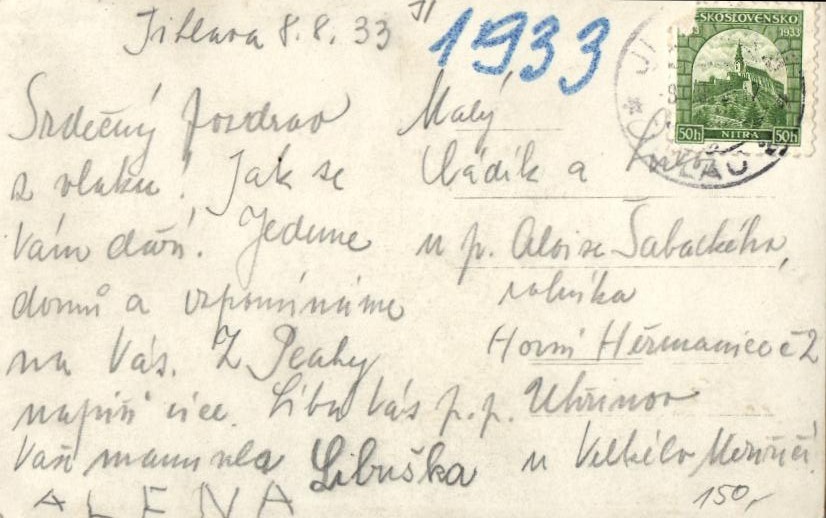 Jihlava 8.8.33
1933
Srdečný pozdrav
z vlaku! Jak se
Vám daří. Jedeme
domů a vzpomínáme
na Vás. Z Prahy
napíši více. Líbá Vás
Vaši maminka Libuška
ALENA
Malý
Vládík a
u p. Aloise Šabackého,
rolníka
Horní Heřmanice č 2
p.p. Uhřinov
u Velkého Meziříčí
150,-
ČESKOSLOVENSKO
1933
50h NITRA 50h